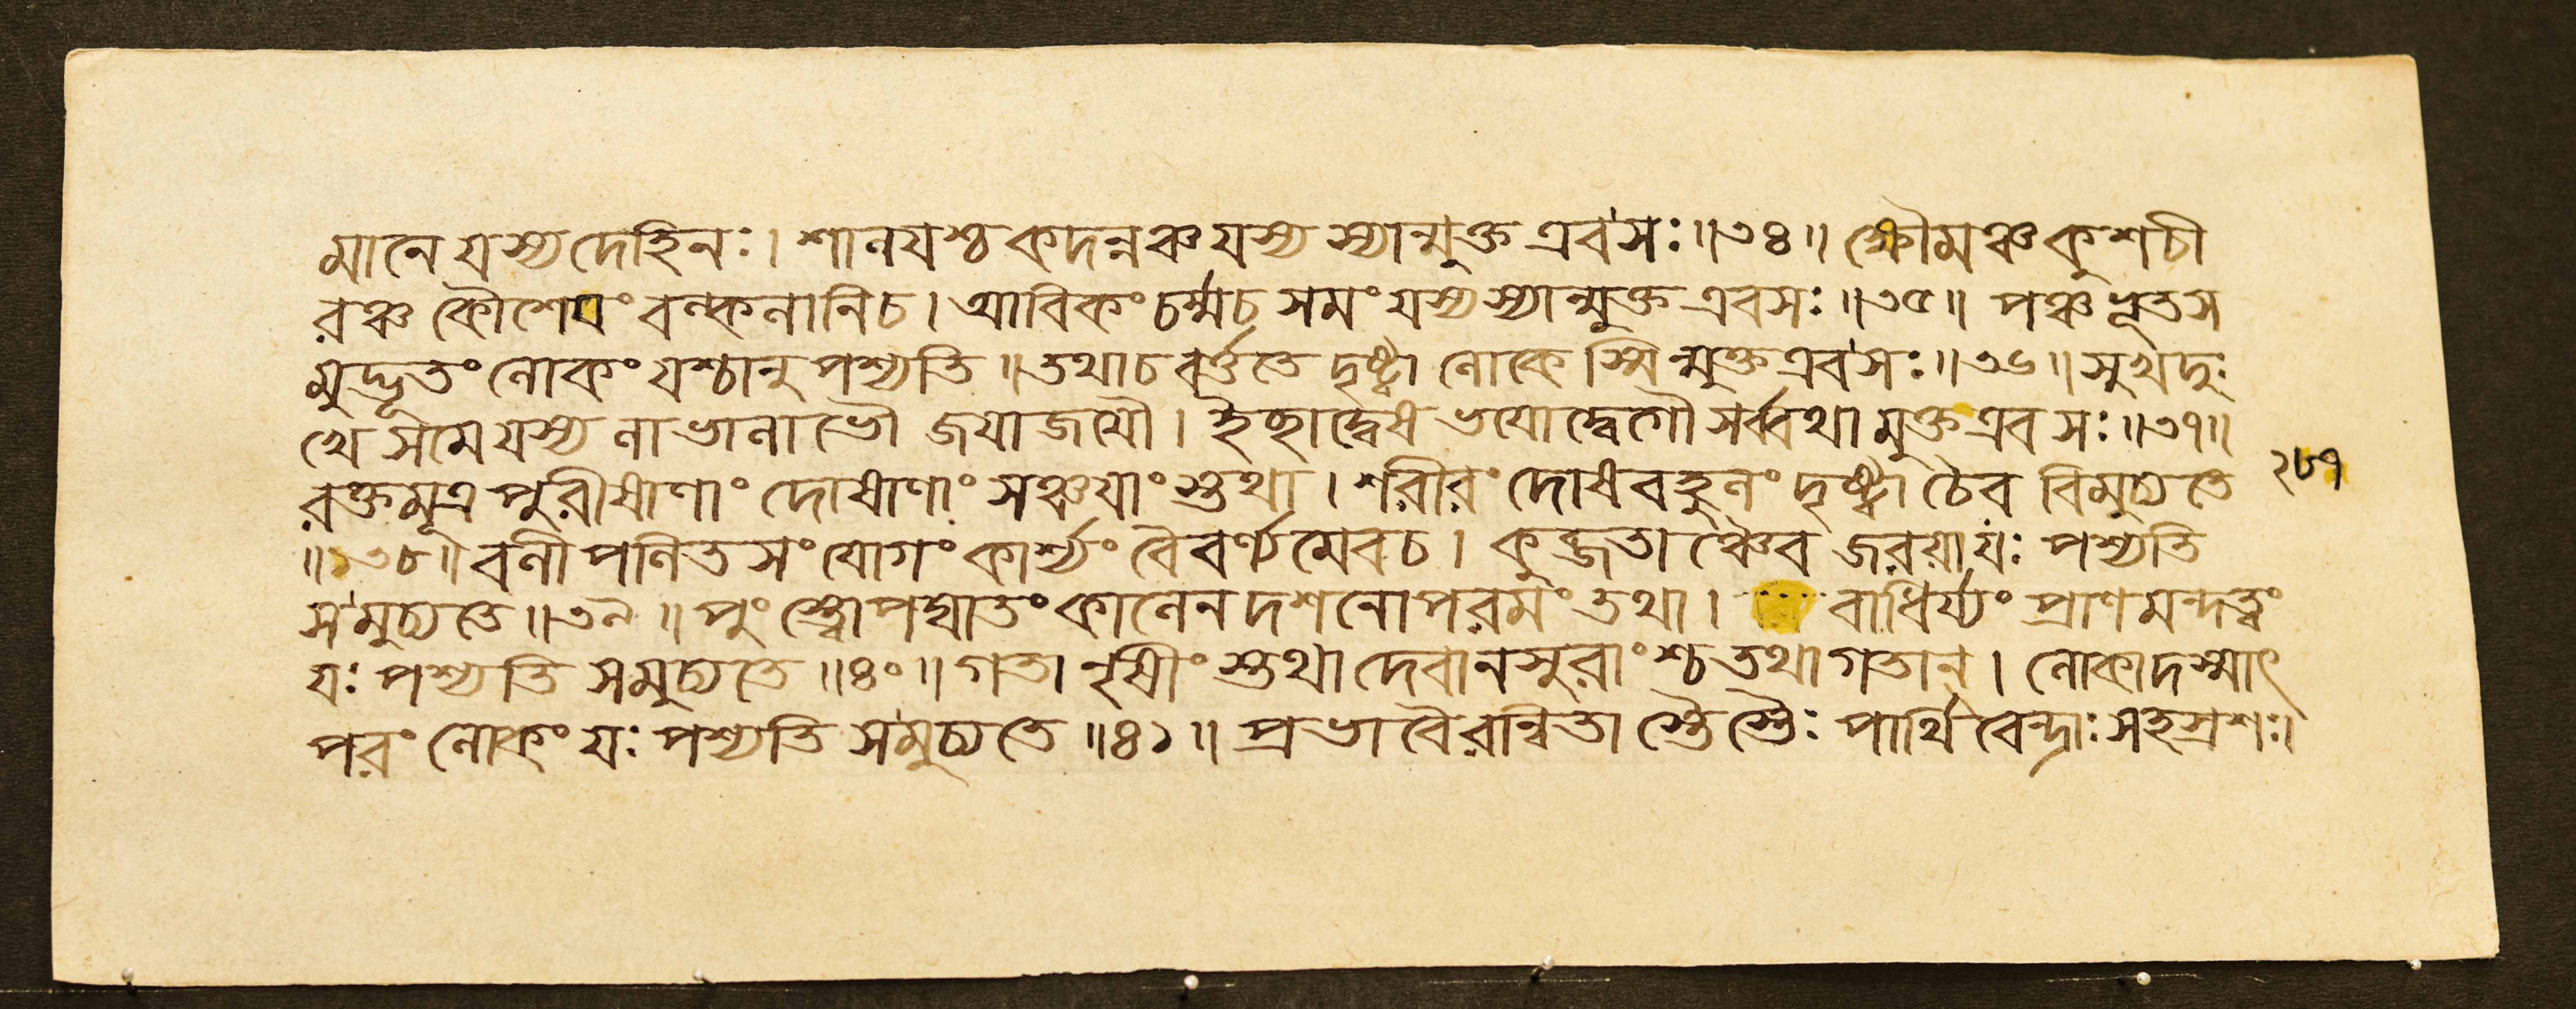 মানে যস্য দেহিনঃ। শালযশ্চ কদন্নঞ্চ যস্য স্যান্মুক্ত এব সঃ॥৩৪॥ ক্ষৌমঞ্চ কুশচী
রঞ্চ কৌশেযং বল্কলানি চ। আবিকং চর্ম্ম চ সমং যস্য স্যান্মুক্ত এব সঃ॥৩৫॥ পঞ্চভূতস
মুদ্ভূতং লোকং যশ্চানুপশ্যতি॥ তথা চ বর্ত্ততে দৃষ্ট্বা লোকেস্মিন্মুক্ত এব সঃ॥৩৬॥ সুখদুঃ
খে সমে যস্য লাভালাভৌ জযাজযৌ। ইচ্ছাদ্বেষ ভযোদ্বেগৌ সর্ব্বথা মুক্ত এব সঃ॥৩৭॥
রক্তমূত্রপুরীষাণাং দোষাণাং সঞ্চযাংস্তথা। শরীরং দোষবহুলং দৃষ্ট্বা চৈব বিমুচ্যতে
॥৩৮॥ বলীপলিতসংযোগং কার্শ্যং বৈবর্ণ্যমেব চ। কুব্জতাঞ্চৈব জরয়া যঃ পশ্যতি
স মুচ্যতে॥৩৯॥ পুংস্ত্বোপঘাতং কালেন দশনোপরমং তথা। বাধির্য্যং প্রাণমন্দত্বং
যঃ পশ্যতি স মুচ্যতে॥৪০॥ গতানৃষীংস্তথা দেবানসুরাংশ্চ তথা গতান্। লোকাদস্মাৎ
পরং লোকং যঃ পশ্যতি স মুচ্যতে॥৪১॥ প্রভাবৈরন্বিতাস্তৈস্তৈঃ পার্থিবেন্দ্রাঃ সহস্রশঃ।
২৮৭